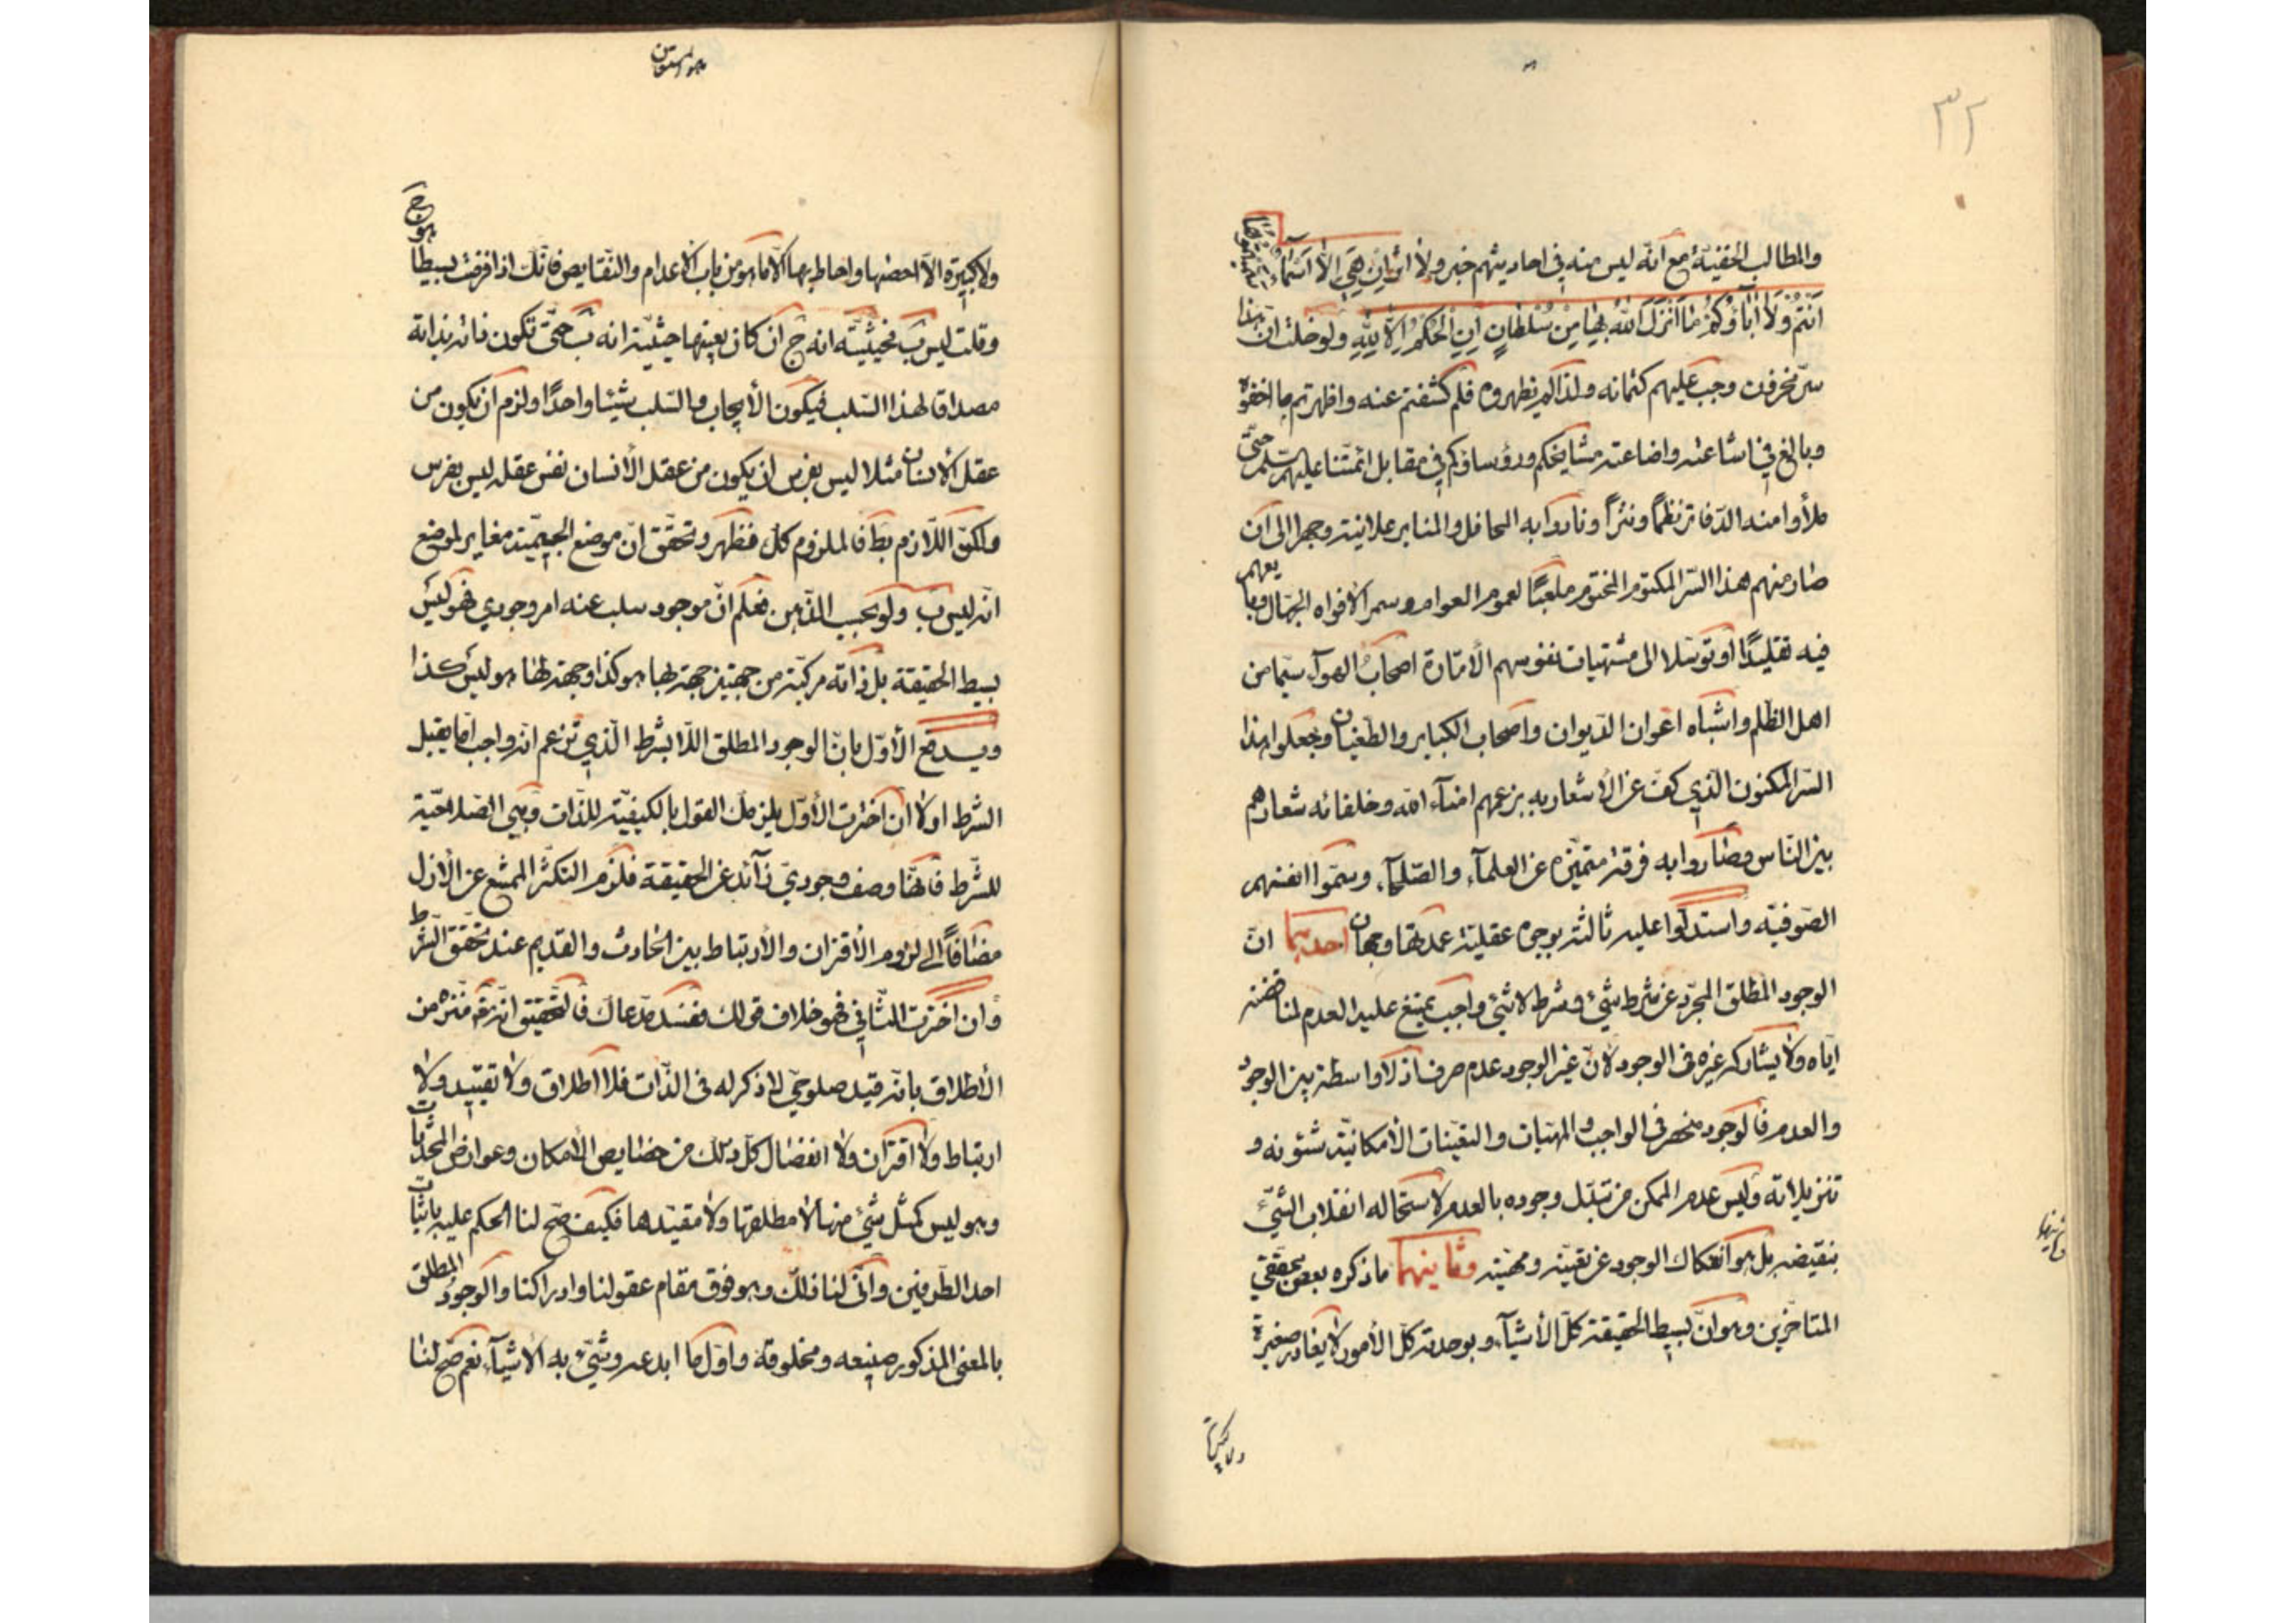 ٣٢
والمطالب الخفيّة مع انّه ليس منه في احاديثهم خبر ولا اثر ان هي الا اسماء سمّيتموها
انتم ولا اباؤكم ما انزل الله بها من سلطان ان الحكم الا لله ولو خلت ان هذا
سرّ مخزون وجب عليهم كتمانه ولذا لم يظهروه فلم كشفتم عنه واظهرتم ما اخفوه
وبالغ في اشاعته واضاعته مشايخكم ورؤساؤكم في مقابل ائمتنا عليهم سلم حتّى
ملأوا منه الدّفاتر نظمًا ونثرًا ونادوا به المحافل والمنابر علانية وجهرا الى ان
صار منهم هذا السّر المكتوم المختوم ملعبًا لعموم العوام وسمر الافواه الجهّال
فيه تقليدًا او توسّلا الى مشتهيات نفوسهم الأمّارة اصحاب الهوآء سيّما من
اهل الظّلم واشباه اعوان الدّيوان واصحاب الكباير والطّغيان وجعلوا هذا
السّر المكنون الّذي كفّ عن الأشعار به بزعمهم امنآء الله وخلفائه شعارهم
بين النّاس وصاروا به فرقة متميّزه عن العلمآء والصّلحآء وسمّوا انفسهم
الصّوفيّه واستدلّوا عليه ثالثة بوجوه عقليّة عمدتها وجهان احدهما انّ
الوجود المطلق المجرّد عن شرط شيئ وشرط لا شيئ واجب يمتنع عليه العدم لمناقضته
ايّاه ولا يشاركه غيره في الوجود لانّ غير الوجود عدم صرف اذ لا واسطة بين الوجود
والعدم فالوجود منحصر في الواجب والمهيّات والتعيّنات الأمكانيّة شئونه و
تنزيلاته وليس عدم الممكن من تبدّل وجوده بالعدم لاستحاله انقلاب الشيئ
بنقيضه بل هو انفكاك الوجود عن تعيّنه ومهيّته وثانيهما ما ذكره بعض محقّقي
المتاخّرين وهو انّ بسيط الحقيقة كلّ الأشيآء وبوحدته كلّ الأمور لا يغادر صغيرة
ولا كبيرة
ولا كبيرة الّا احصيها واحاط بها الّا ما هو من باب الاعدام والنّقايص فانّك اذا فرضت بسيطا هو ج
وقلت ليس ب فحيثيّة انه ج ان كان بعينها حيثيّة انه ليس ب حتّى تكون ذاته بذاته
مصداقا لهذا السّلب فيكون الأيجاب والسّلب شيئا واحدًا ولزم ان يكون من
عقل الانسان مثلا ليس بفرس ان يكون من عقل الأنسان نفس عقله ليس بفرس
ولكن اللّازم بط فالملزوم كك فظهر وتحقّق انّ موضع الجيميّة مغاير لموضع
انّه ليس ب ولو بحسب الذّهن فعلم انّ موجود سلب عنه امر وجودي فهو ليس
بسيط الحقيقة بل ذاته مركّبة من جهتين جهة لها هو كذا وجهة لها هو ليس كذا
ويدفع الأوّل بانّ الوجود المطلق اللّا بشرط الّذي تزعم انّه واجب امّا يقبل
الشّرط او لا ان اخترت الأوّل يلزمك القول بالكيفيّة للذّات وهي الصّلاحيّة
للشّرط فانّها وصف وجودي زآئد عن الحقيقة فلزم التكثّر الممتنع عن الأزل
مضافاً الى لزوم الأقتران والأرتباط بين الحادث والقديم عند تحقّق الشّرط
وان اخترت الثّاني فهو خلاف قولك ففسد مدّعاك فالتّحقيق انّه تع منزّه من
الأطلاق بانّه قيد صلوحيّ لا ذكر له في الذّات فلا اطلاق ولا تقييد ولا
ارتباط ولا اقتران ولا انفصال كلّ ذلك من خصايص الأمكان وعوارض المحدثات
وهو ليس كمثل شيئ منها لا مطلقها ولا مقيّدها فكيف صحّ لنا الحكم عليه باثبات
احد الطّرفين وانّى لنا ذلك وهو فوق مقام عقولنا وادراكنا والوجود المطلق
بالمعنى المذكور صنيعه ومخلوقه واوّل ما ابدعه وشيّئ به الأشيآء نعم صحّ لنا